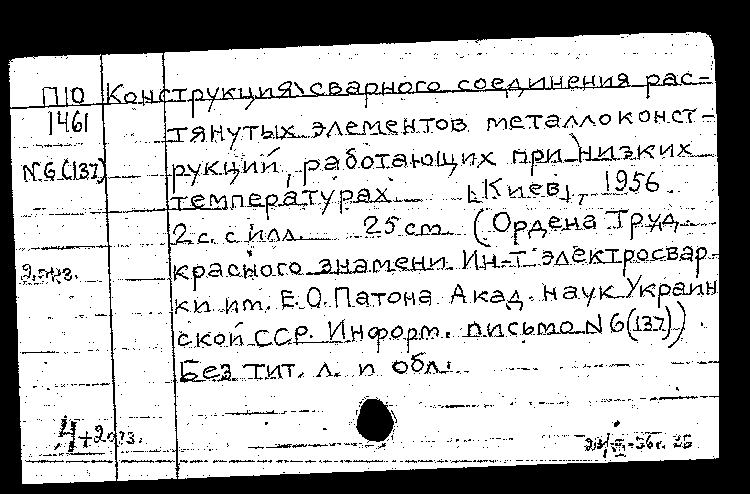 П10 Конструкция сварного соединения рас-
1461 тянутых элементов металлоконст-
N6(137) рукций, работающих при низких
температурах [Киев], 1956.
2 с. с илл. 25 см (Ордена Труд.
2 экз. красного знамени Ин-т электросвар-
ки им. Е.О. Патона Акад. наук Украин
ской ССР. Информ. письмо N6(137)).
Без тит. л. и обл.
4+2экз.